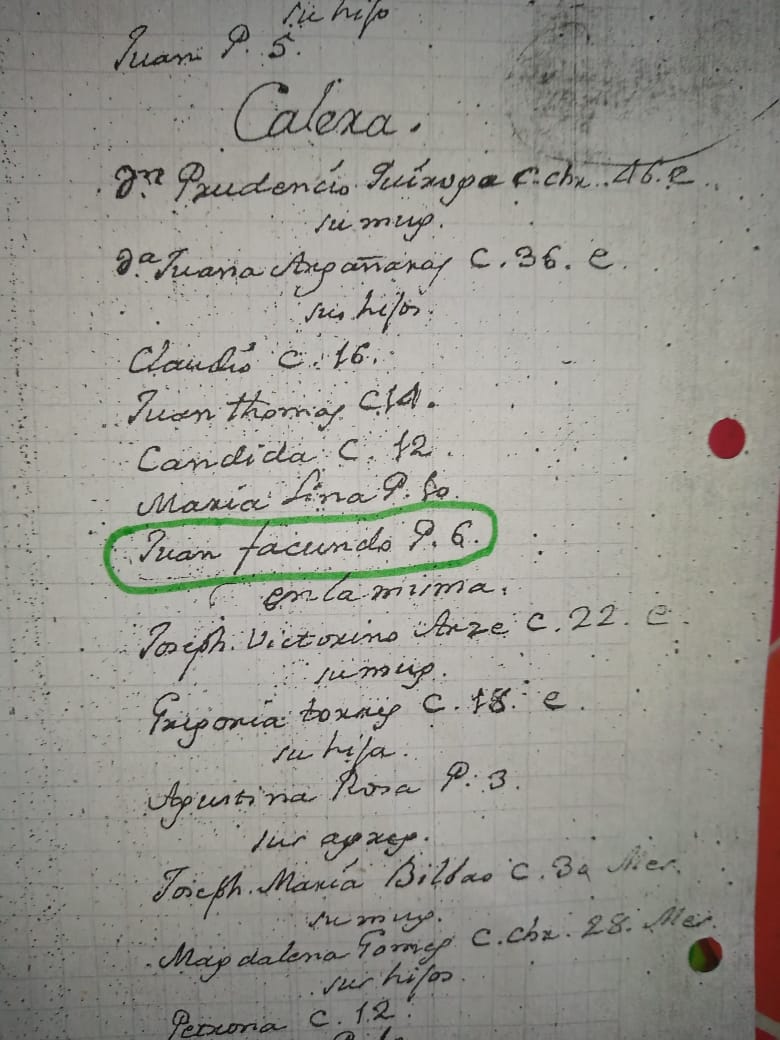 su hijo
Juan P. 5.
Calera.
Dn Prudencio Quiroga C. chr. 46. e
su mug.
Da Juana Argañaras C. 36. e.
sus hijos.
Claudio C. 16.
Juan thomas C14.
Candida C. 12.
Maria lina P. 10.
Juan facundo P. 6.
en la misma.
Joseph. Victorino Arze C. 22. e
su mug.
Gregoria torres C. 18. e.
su hija.
Agustina Rosa P. 3.
sus agreg.
Joseph. María Bilbao C. 30 Mer.
su mug.
Magdalena Gomes C. chr. 28. Mer.
sus hijos.
Petrona C. 12.